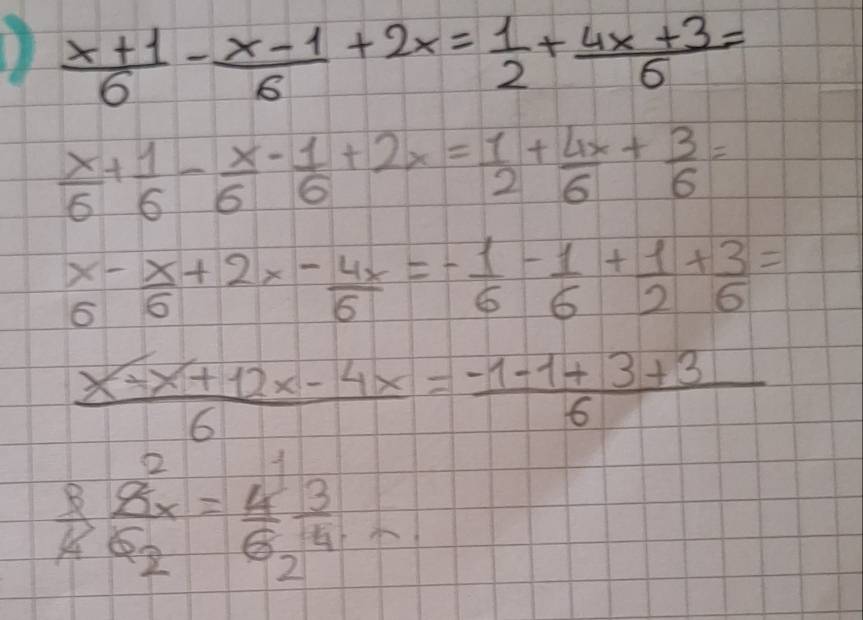 1) x+1/6 - x-1/6 + 2x = 1/2 + 4x+3/6 =
x/6 + 1/6 - x/6 - 1/6 + 2x = 1/2 + 4x/6 + 3/6 =
x/6 - x/6 + 2x - 4x/6 = -1/6 - 1/6 + 1/2 + 3/6 =
x-x+12x-4x/6 = -1-1+3+3/6
8x/6 = 4/6 3/4